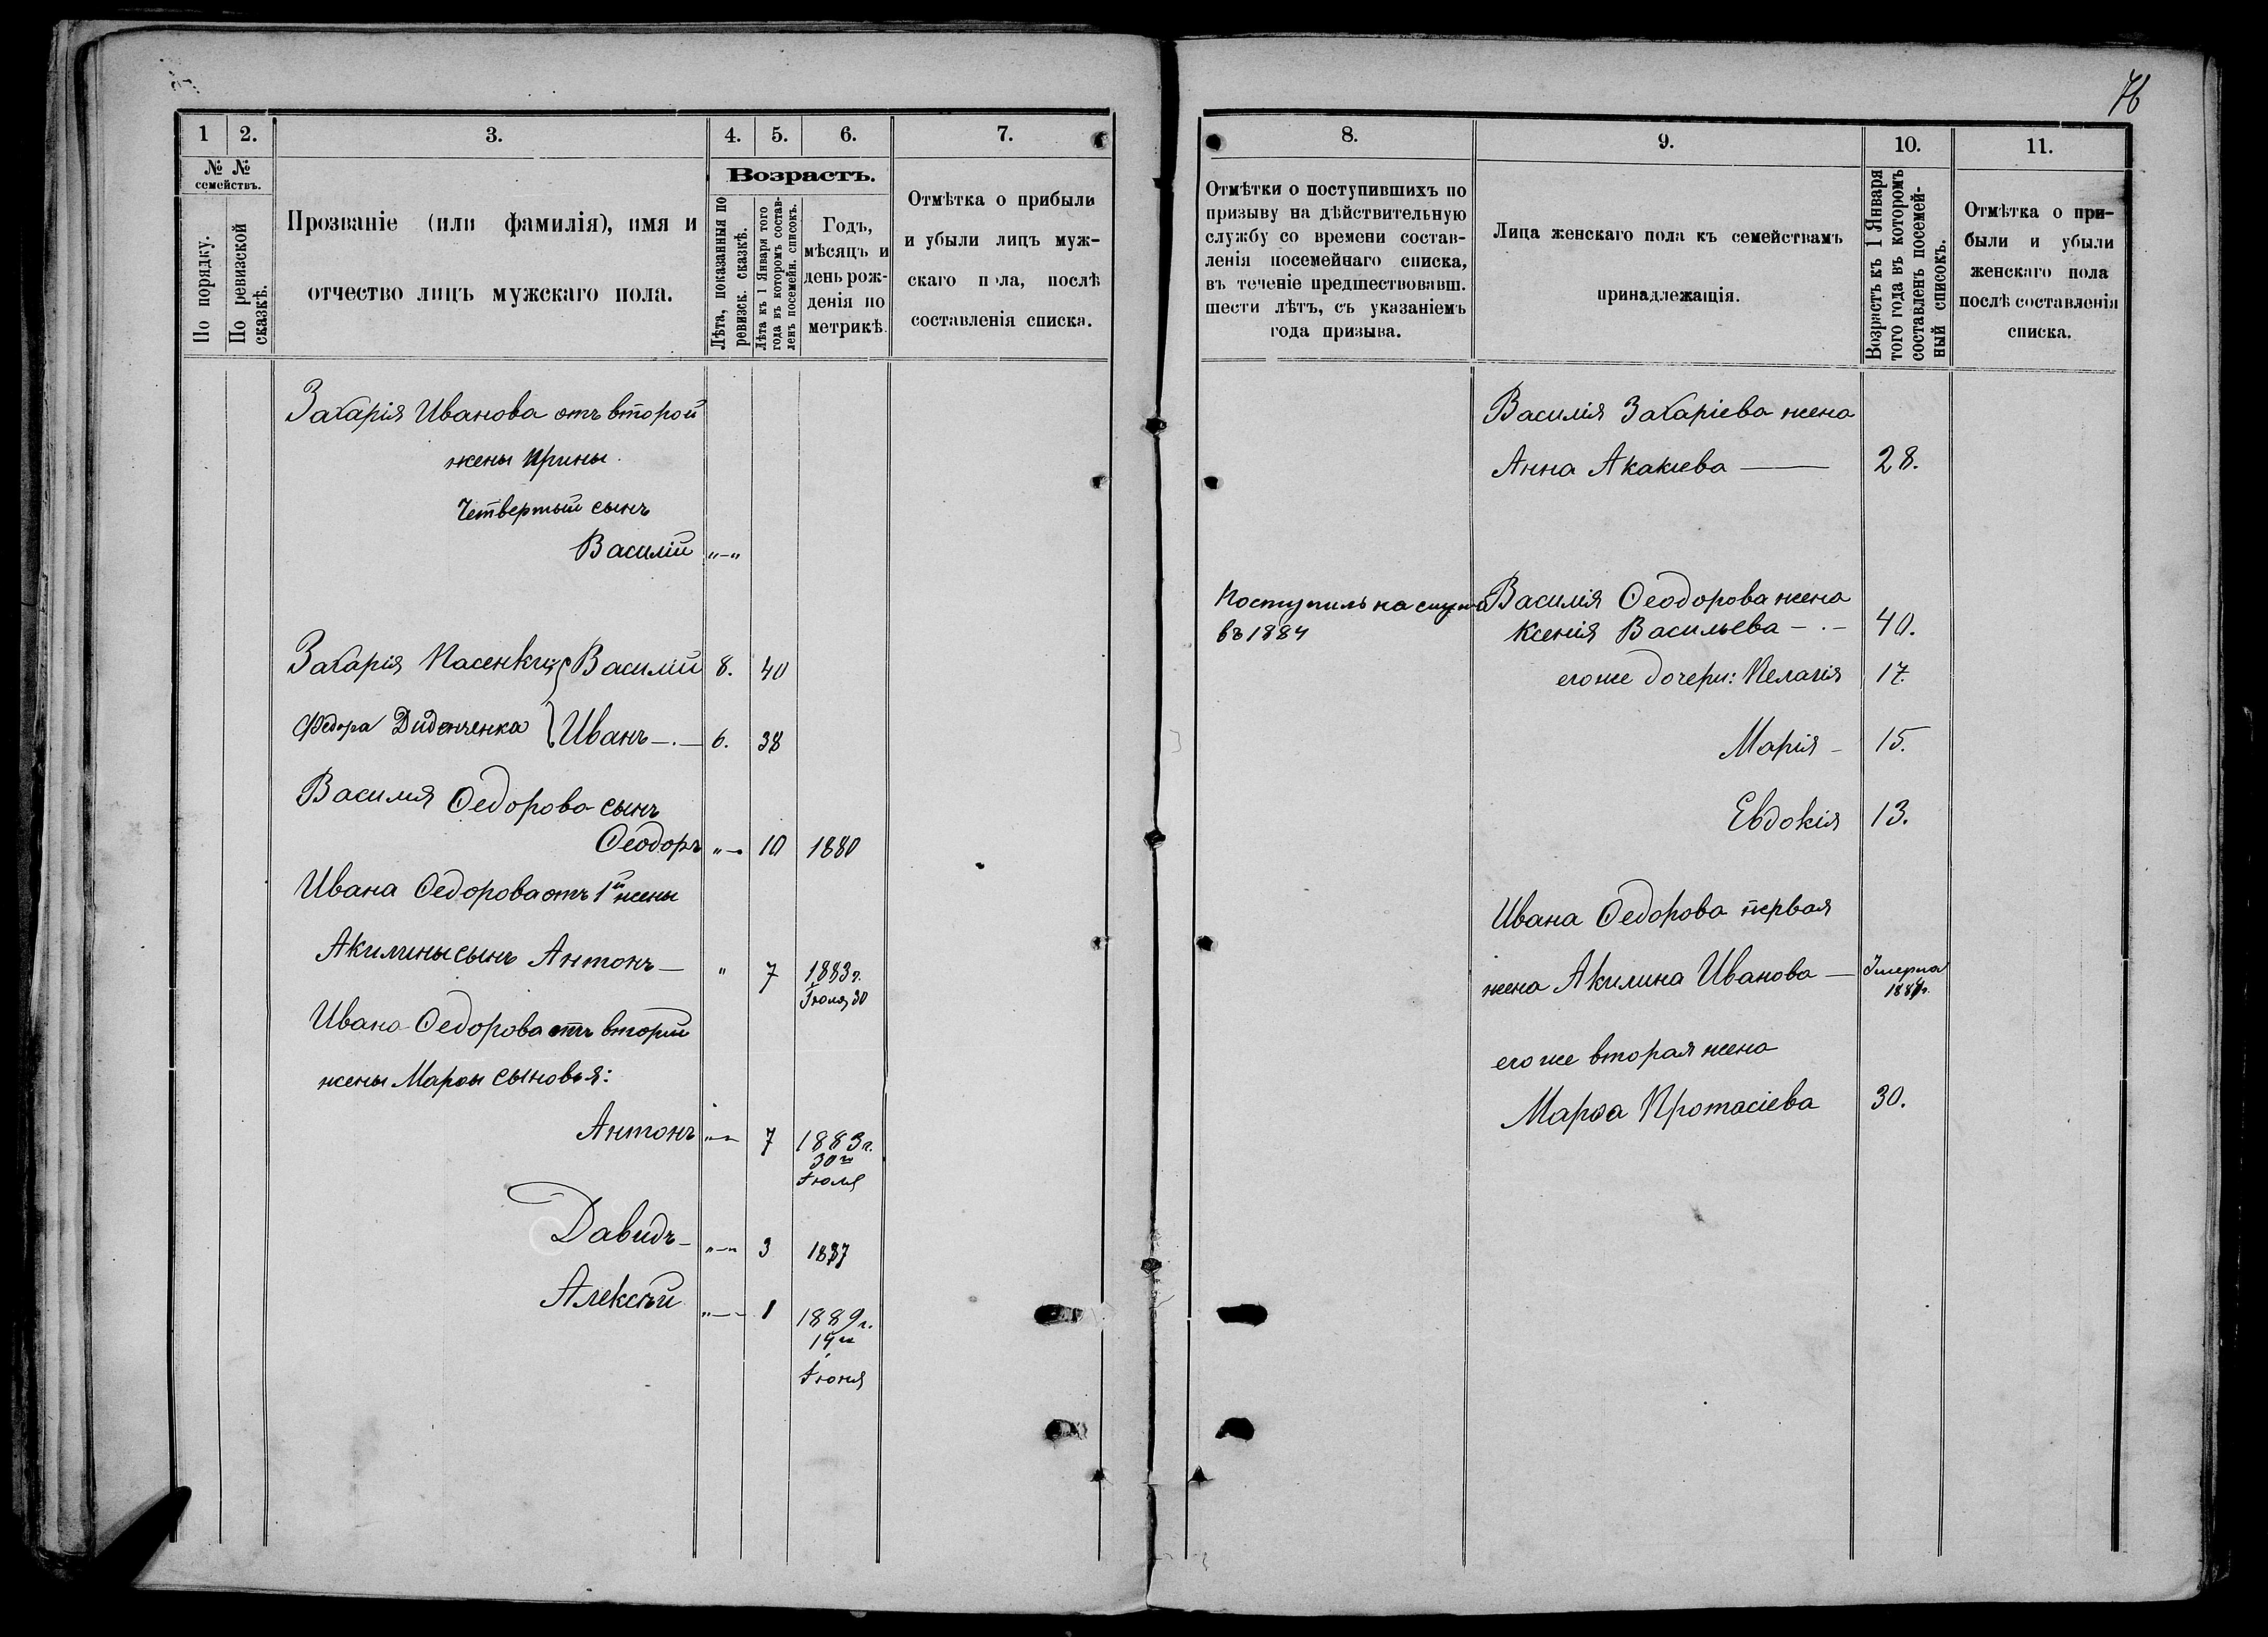 76
1 2. 3. 4. 5. 6. 7.
№ №
семействъ.
По порядку.
По ревизской
сказкѣ.
Прозваніе (или фамилія), имя и
отчество лицъ мужскаго пола.
Возрастъ.
Лѣта, показанныя по
ревизск. сказкѣ.
Лѣта къ 1 Января того
года въ которомъ состав-
ленъ посемейн. списокъ.
Годъ,
мѣсяцъ и
день рож-
денія по
метрикѣ.
Отмѣтка о прибыли
и убыли лицъ муж-
скаго пола, послѣ
составленія списка.
Захарія Иванова отъ второй
жены Ирины.
Четвертый сынъ
Василій „–„
Захарія Пасенки Василій 8. 40
Федора Диденченка Иванъ 6. 38
Василія Ѳедорова сынъ
Ѳеодоръ „–„ 10 1880
Ивана Ѳедорова отъ 1й жены
Акилины сынъ Антонъ — „ 7 1883г.
Іюля 30
Ивана Ѳедорова отъ второй
жены Марѳы сыновья:
Антонъ „–„ 7 1883г.
30го
Іюля
Давидъ „–„ 3 1887
Алексѣй „–„ 1 1889г.
14го
Іюня
8. 9. 10. 11.
Отмѣтки о поступившихъ по
призыву на дѣйствительную
службу со времени состав-
ленія посемейнаго списка,
въ теченіе предшествовавш.
шести лѣтъ, съ указаніемъ
года призыва.
Лица женскаго пола къ семействамъ
принадлежащія.
Возрастъ къ 1 Января
того года въ которомъ
составленъ посемей-
ный списокъ.
Отмѣтка о при-
были и убыли
женскаго пола
послѣ составленія
списка.
Василія Захаріева жена
Анна Акакіева — 28.
Поступилъ на
въ 1884
Василія Ѳеодорова жена
Ксенія Васильева – . – 40.
его же дочери: Пелагія 17.
Марія – 15.
Евдокія 13.
Ивана Ѳедорова первая
жена Акилина Иванова — Умерла
его же вторая жена
Марѳа Протасіева 30.